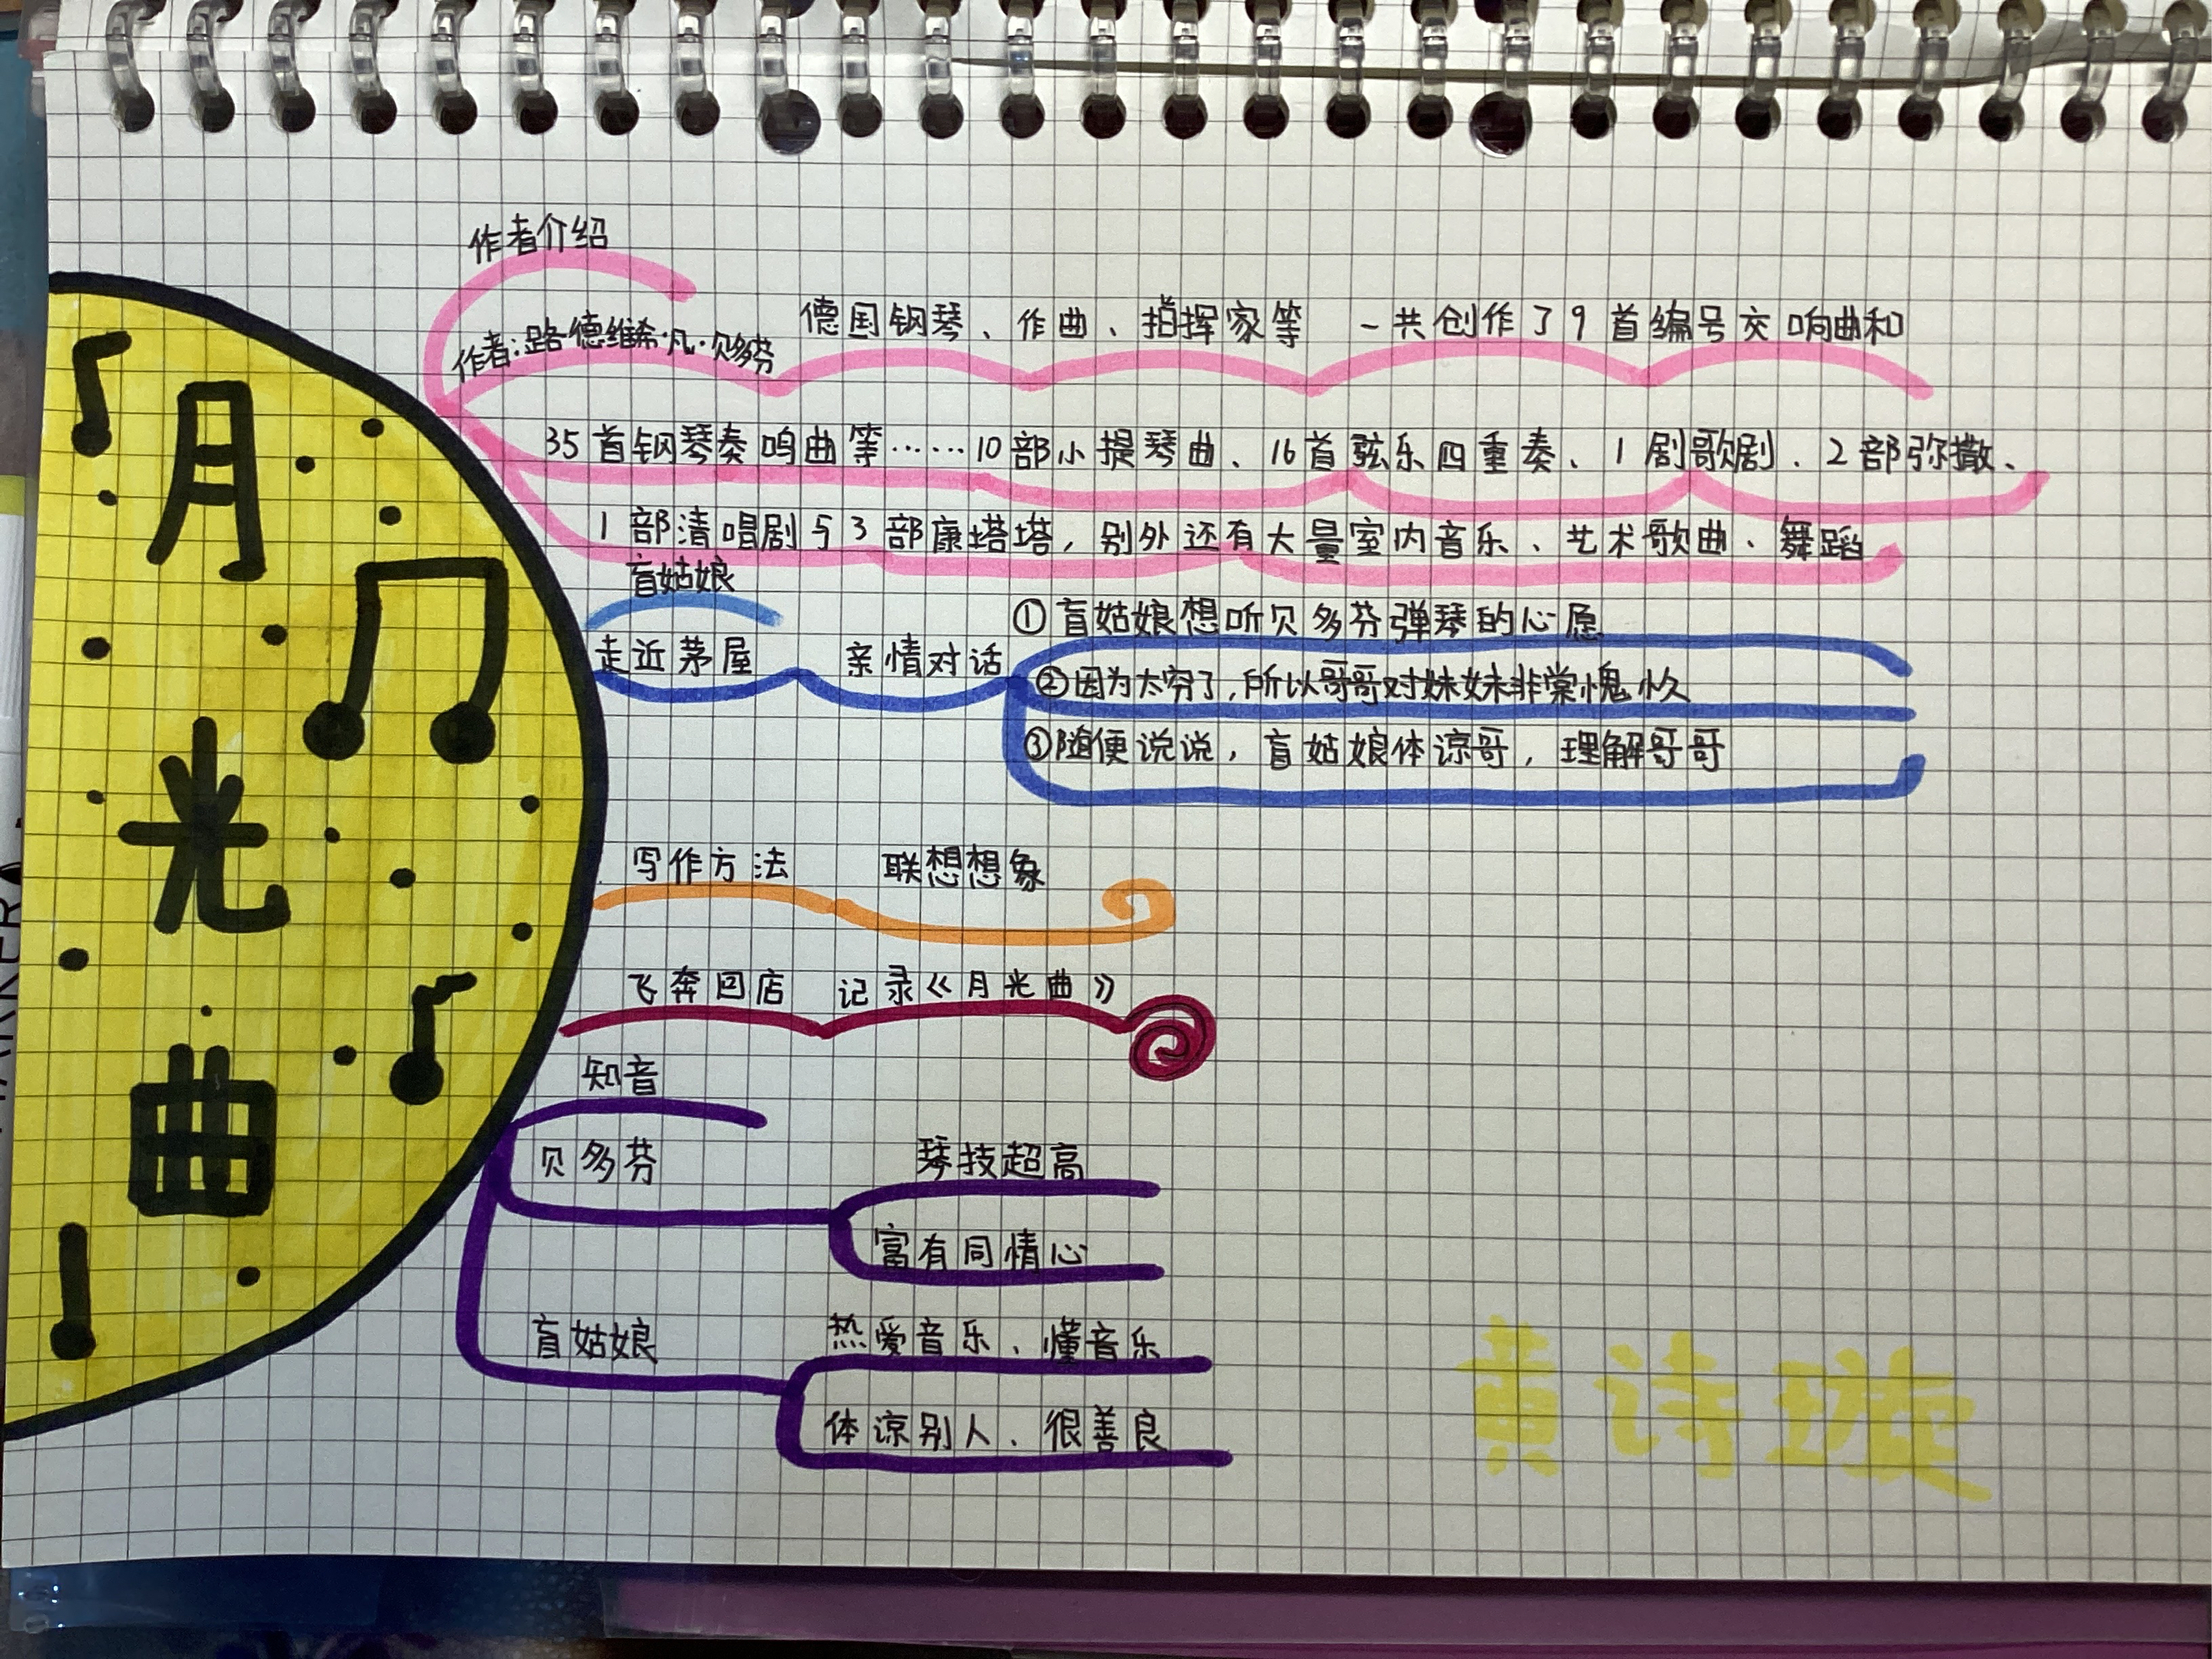 月光曲
作者介绍
作者：路德维希·凡·贝多芬
德国钢琴、作曲、指挥家等 一共创作了9首编号交响曲和
35首钢琴奏鸣曲等……10部小提琴曲、16首弦乐四重奏、1剧歌剧、2部弥撒、
1部清唱剧与3部康塔塔，别外还有大量室内音乐、艺术歌曲、舞蹈
盲姑娘
走近茅屋 亲情对话
①盲姑娘想听贝多芬弹琴的心愿
②因为太穷了，所以哥哥对妹妹非常愧疚
③随便说说，盲姑娘体谅哥，理解哥哥
写作方法 联想想象
飞奔回店 记录《月光曲》
知音
贝多芬
琴技超高
富有同情心
盲姑娘
热爱音乐、懂音乐
体谅别人、很善良
黄诗璇